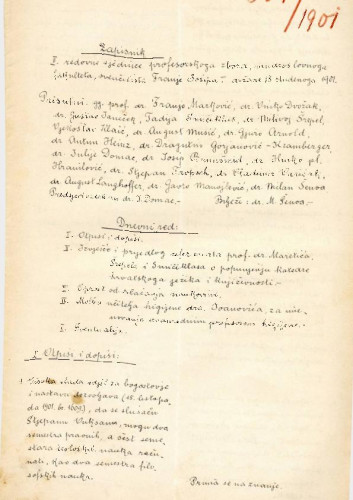 1901
Zapisnik
I. redovne sjednice profesorskoga zbora, mudroslovnoga
fakulteta, sveučilišta Franje Josipa I. držane 18 studenoga 1901.
Prisutni: gg. prof. dr. Franjo Marković, dr. Vinko Dvořák,
dr. Gustav Janeček, Tadija Smičiklas, dr. Milivoj Šrepel,
Vjekoslav Klaić, dr. August Musić, dr. Gjuro Arnold,
dr. Antun Heinz, dr. Dragutin Gorjanović-Kramberger,
dr. Julije Domac, dr. Josip Primižić, dr. Hinko pl.
Hranilović, dr. Stjepan Tropsch, dr. Vladimir Varićak,
dr. August Langhoffer, dr. Gavro Manojlović, dr. Milan Šenoa
Predsjeda dekan dr. J. Domac. Bilježi: dr. M. Šenoa.
Dnevni red:
I. Otpisi i dopisi.
II. Izvješće i prijedlog referenata prof. dr. Maretića,
Šrepela i Smičiklasa o popunjenju katedre
hrvatskoga jezika i književnosti.
III. Oprost od plaćanja naukovine.
Molba učitelja higijene dra. Ivanovića, za ime
novanja izvanrednim profesorom higijene.
Eventualija.
I Otpisi i dopisi:
1. Visoka vlada odjel za bogoštovje
i nastavu dozvoljava (18. listopa
da 1901. br. 1609), da se slušaču
Stjepanu Vuksanu, mogu dva
semestra pravnih, a šest seme
stara nauka raču
nati, kao dva semestra filo
sofskih nauka.
Prima se na znanje.